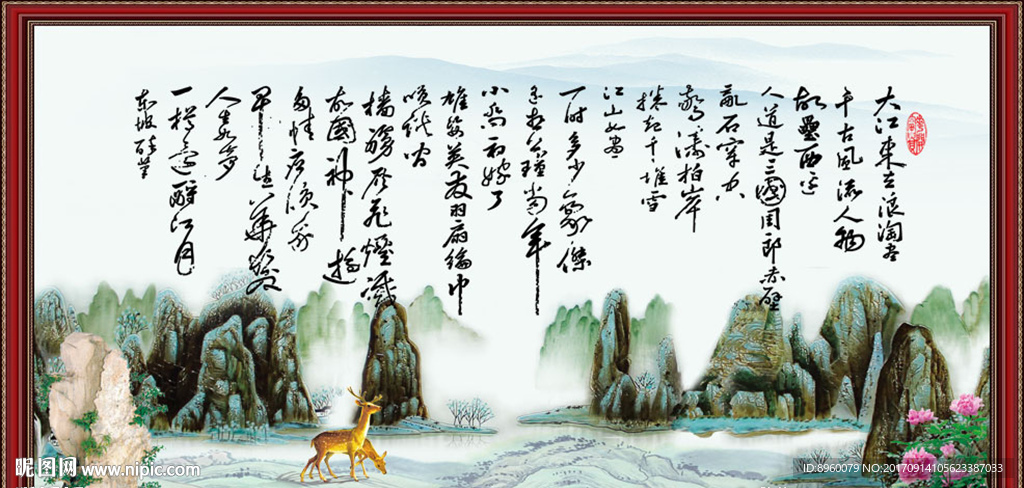 大江東去浪淘尽
千古風流人物
故壘西边
人道是三國周郎赤壁
亂石穿空
驚濤拍岸
捲起千堆雪
江山如畫
一时多少豪傑
遥想公瑾當年
小喬初嫁了
雄姿英发羽扇綸巾
談笑间
檣櫓灰飛煙滅
故國神遊
多情应笑我
早生華髮
人生如夢
一樽還酹江月
東坡
昵图网 www.nipic.com
ID:8960079 NO:20170914105623387033